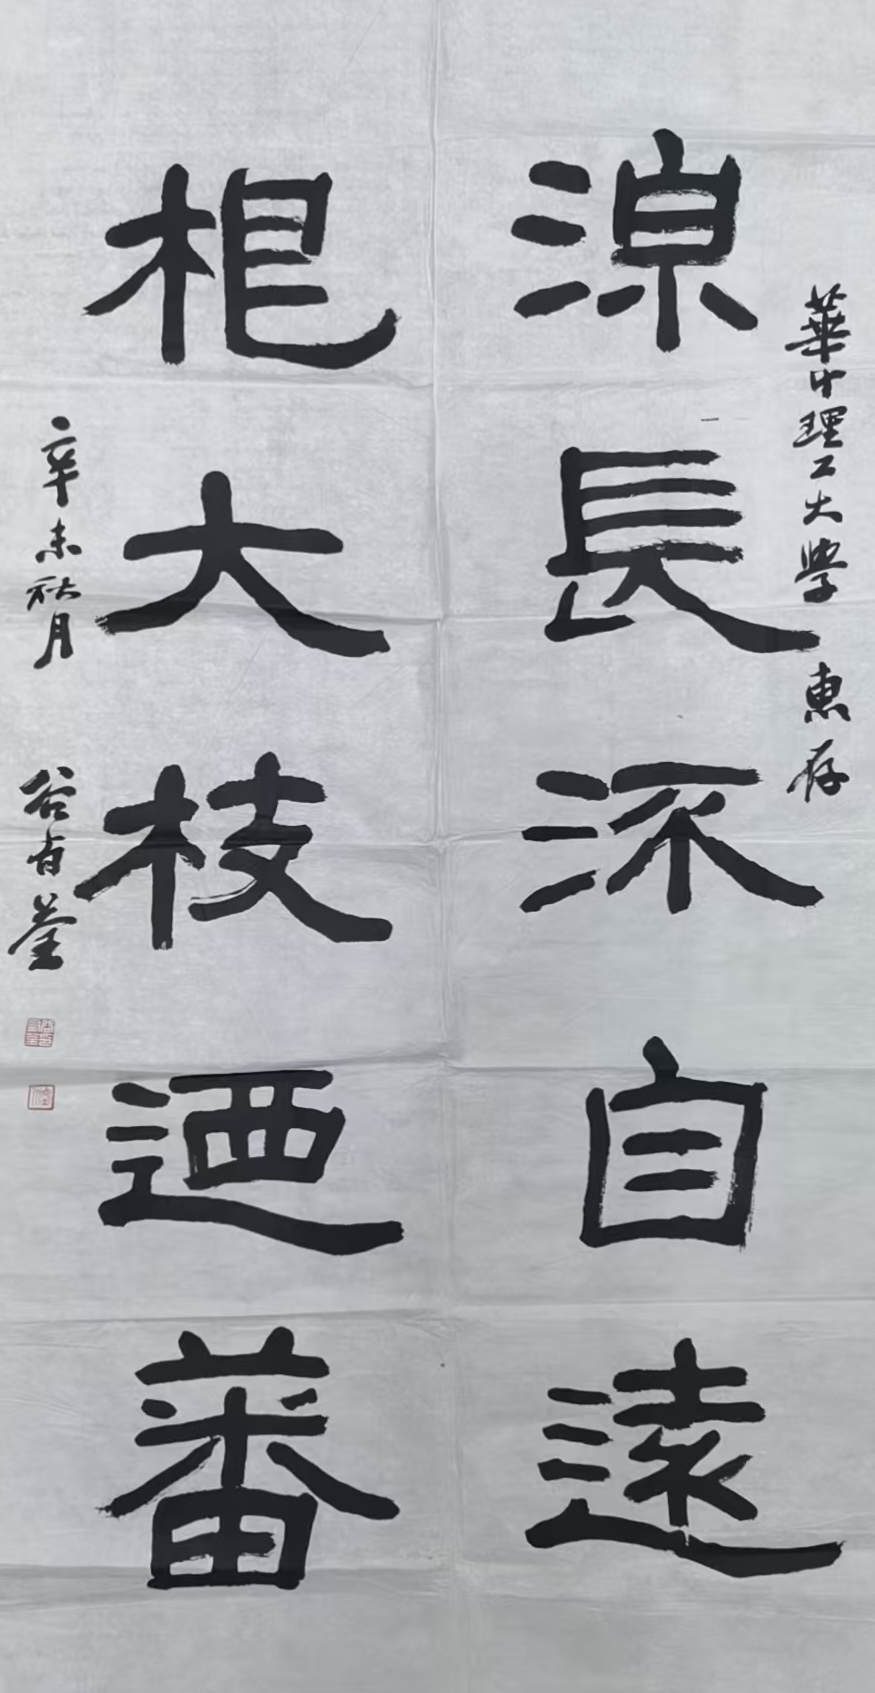 華中理工大學 惠存
源長流自遠
根大枝迺蕃
辛未秋月 谷有荃